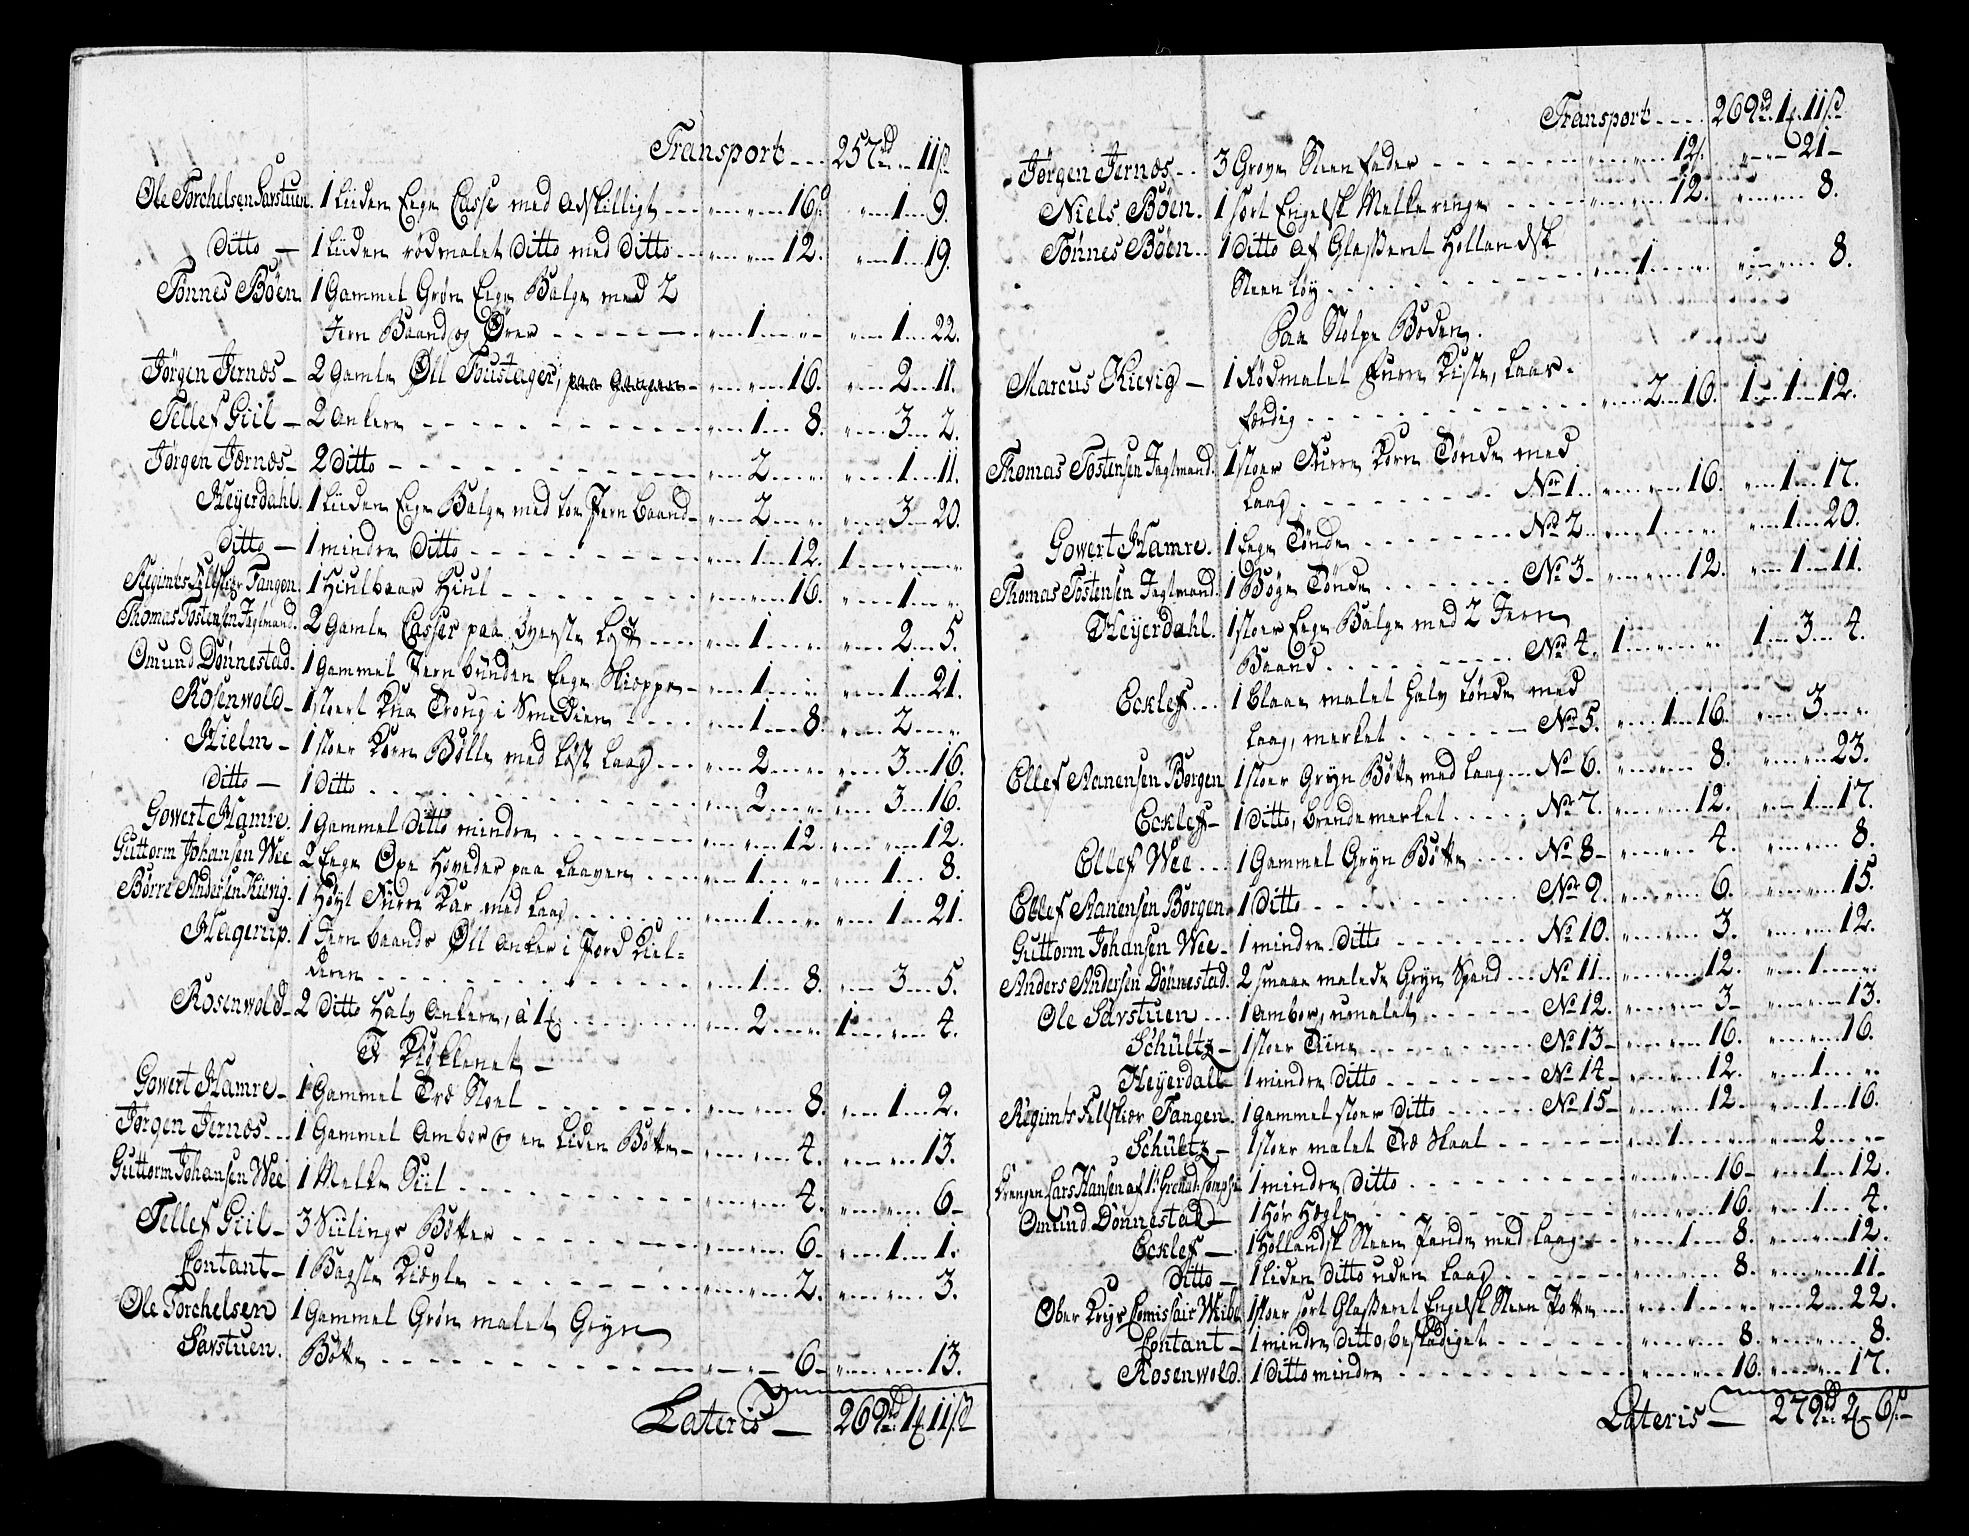 Transport .... 257rd .. 11ß
Ole Torchelsen Sarstuen. 1 liiden Eege Casse med Adskilligt --- " --- " --- 16ß " --- 1 --- 9.
Ditto — 1 liiden rödmalet Ditto med Ditto --- " --- " --- 12. " --- 1 --- 19.
Tönnes Böen 1 Gammel Grön Eege Balge med 2
Jern Baand og Örer --- " --- 1 --- " " --- 1 --- 22.
Jörgen Jernæs — 2 Gamle Öll Foustager, paa Gangen --- " --- " --- 16. " --- 2 --- 11.
Tellef Giil — 2 Ankere --- " --- 1 --- 8. " --- 3 --- 2.
Jörgen Jærnæs — 2 Ditto --- " --- 2 --- " " --- 1 --- 11.
Heyerdahl. 1 liiden Eege Balge med toe Jern Baand — " --- 2 --- " " --- 3 --- 20.
Ditto — 1 mindre Ditto --- " --- 1 --- 12. 1 --- " --- "
Regimts Feltskier Tangen. 1 Hiulbaar Hiul --- " --- " --- 16. " --- 1 --- "
Thomas Tostensen Jaglmand. 2 Gamle Casser paa överste Loft --- " --- 1 --- " " --- 2 --- 5.
Omund Dönnestad. 1 Gammel Jern bunden Eege Skieppe — " --- 1 --- " " --- 1 --- 21.
Rosenwold — 1 stoert Trug i Smedien --- " --- 1 --- 8. " --- 2 --- "
Hielm — 1 stoer Korn Bölle med löst Laag --- " --- 2 --- " " --- 3 --- 16.
Ditto — 1 Ditto --- " --- 2 --- " " --- 3 --- 16.
Gowert Hamre. 1 Gammel Ditto mindre --- " --- " --- 12. " --- " --- 12.
Guttorm Johansen Wee 2 Eege Oxe Hoveder paa Laaven --- " --- 1 --- " " --- 1 --- 8.
Börre Andersen Kievig. 1 Höyt Furre Kar med Laag --- " --- 1 --- " " --- 1 --- 21.
Hagerup. 1 Jern baands Öll Anker i Jord Kiel-
deren --- " --- 1 --- 8. " --- 3 --- 5.
Rosenwold — 2 Ditto Halv Ankere, à 1 --- " --- 2 --- " 1 --- " --- 4.
I Kiökkenet —
Gowert Hamre — 1 Gammel Træ Stoel --- " --- " --- 8. " --- 1 --- 2.
Jörgen Jernæs --- 1 Gammel Ambor og en Liden Bötte — " --- " --- 4. " --- " --- 13.
Guttorm Johansen Wee 1 Melke Siil --- " --- " --- 4. " --- " --- 6 —
Tellef Giil — 3 Siilings Bötter --- " --- " --- 6. " --- 1 --- 1.
Contant — 1 Bagste Kiævle --- " --- " --- 2. " --- " --- 3.
Ole Torchelsen 1 Gammel Grön malet Gryn
Sarstuen. Bötte --- " --- " — 6 — " --- " --- 13.
Lateris — 269rd. 1 11ß
Transport .... 269rd. 1 11ß
Jörgen Jernæs -- 3 Grove Steen Fader --- " --- " --- 12ß. " --- " 21 —
Niels Böen. 1 sort Engelsk Melkeringe --- " --- " --- 12. " --- " --- 8.
Tönnes Böen -- 1 Ditto af Glasseret Hollandsk
Steen töy --- " --- 1 --- " " --- " --- 8.
Paa Stolpe Boden.
Marcus Kievig — 1 Rödmalet Furre Kiste, laas-
færdig --- " --- 2 --- 16. 1 --- 1 --- 12.
Thomas Tostensen Jaglmand. 1 stoer Furre Korn Tönde med
Laag --- No 1. " --- " --- 16. " --- 1 --- 17.
Gowert Hamre. 1 Eege Tönde --- No 2 " --- 1 --- " " --- 1 --- 20.
Thomas Tostensen Jaglmand. 1 Böge Tönde --- No 3 — " --- " --- 12. " --- 1 --- 11.
Heyerdahl. 1 stoer Eege Balge med 2 Jern
Baand --- No 4. 1 --- " --- " 1 --- 3 --- 4.
Eckleff --- 1 blaae malet halv tönde med
Laag, merket --- No 5. " --- 1 --- 16. " --- 3 --- "
Ellef Aanensen Borgen 1 stoer Gryn Bötte med Laag --- No 6. " --- " --- 8. " --- " --- 23.
Eckleff — 1 Ditto, brendemerket --- No 7. " --- " --- 12. " --- 1 --- 17.
Ellef Wee --- 1 Gammel Gryn Bötte --- No 8 — " --- " --- 4. " --- " --- 8.
Ellef Aanensen Borgen. 1 Ditto --- No 9. " --- " --- 6. " --- " --- 15.
Guttorm Johansen Wee — 1 mindre Ditto --- No 10. " --- " --- 3. " --- " --- 12.
Anders Andersen Dönnestad. 2 smaae malede Gryn Spand --- No 11. " --- " --- 12. " --- 1 --- "
Ole Sarstuen --- 1 Ambor, umalet --- No 12. " --- " --- 3 — " --- " --- 13.
Schültz — 1 stoer Tiine --- No 13 — " --- " --- 16. " --- " --- 16.
Heyerdall — 1 mindre Ditto --- No 14 — " --- " --- 12. " --- 1 --- "
Regimts Feltskiær Tangen — 1 Gammel stoer Ditto --- No 15 — " --- " --- 12. " --- 1 --- 16.
Schültz — 1 stoer malet Træ Skaal --- " --- 1 --- " " --- 2 --- "
Drengen Lars Hansen af 1te Grenad. Comp: 1 mindre Ditto --- " --- " --- 16 — " --- 1 --- 12.
Omünd Dönnestad — 1 Hör Hegle --- " --- " --- 16. " --- 1 --- 4.
Eckleff — 1 Hollandsk Steen Pande med Laag --- " --- 1 --- 8. " --- " --- 12.
Ditto — 1 Liden Ditto uden Laag --- " --- " --- 8. " --- " --- 11 —
Ober Krigs Comissair Wibe 1 stoer sort Glasseret Engelsk Steen Potte --- " --- 1 --- " " --- 2 --- 22.
Contant — 1 mindre Ditto, beskadiget --- " --- " --- 8. " --- " --- 8.
Rosenwold. 1 Ditto mindre --- " --- " --- 16. " --- " --- 17.
Lateris — 279rd. 2 — 6ß —